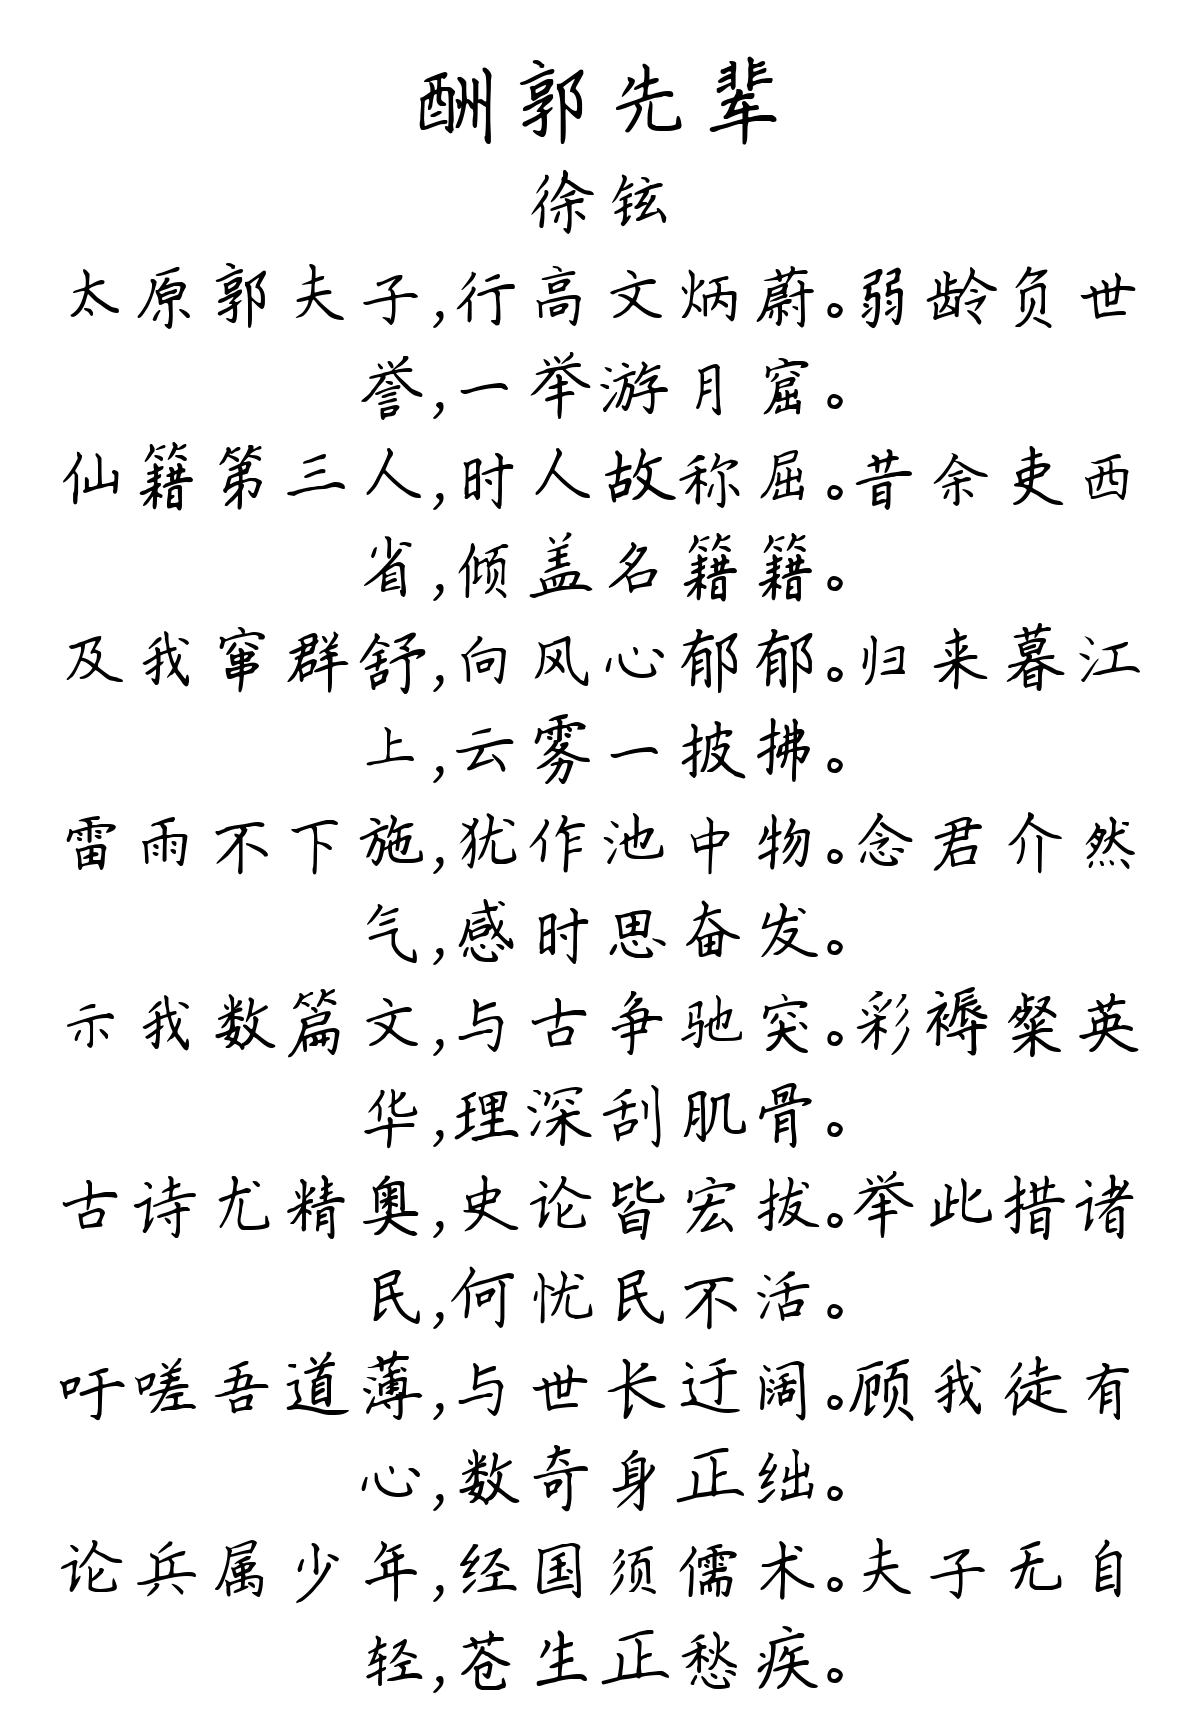 酬郭先辈
徐铉
太原郭夫子,行高文炳蔚。弱龄负世
誉,一举游月窟。
仙籍第三人,时人故称屈。昔余吏西
省,倾盖名籍籍。
及我窜群舒,向风心郁郁。归来暮江
上,云雾一披拂。
雷雨不下施,犹作池中物。念君介然
气,感时思奋发。
示我数篇文,与古争驰突。彩褥粲英
华,理深刮肌骨。
古诗尤精奥,史论皆宏拔。举此措诸
民,何忧民不活。
吁嗟吾道薄,与世长迂阔。顾我徒有
心,数奇身正绌。
论兵属少年,经国须儒术。夫子无自
轻,苍生正愁疾。